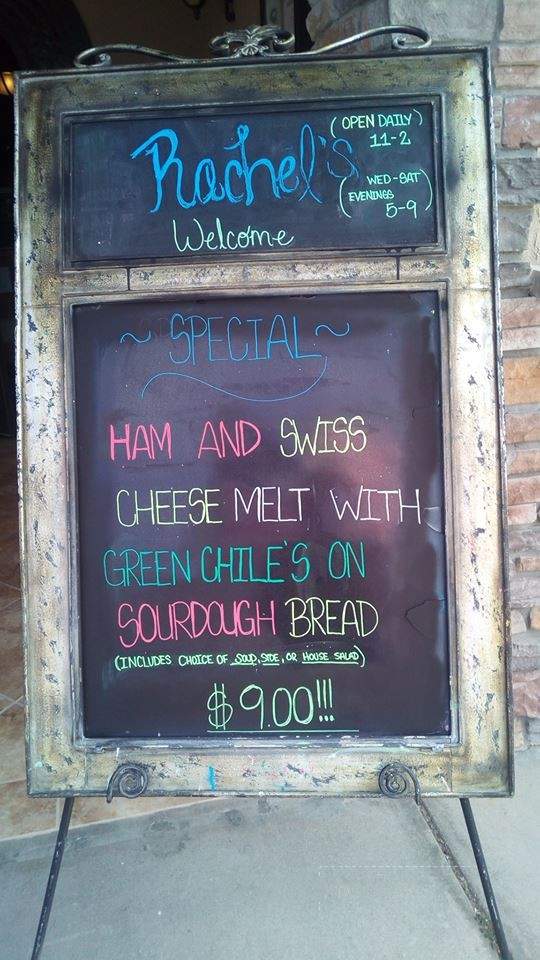 Rachel's
(OPEN DAILY)
11-2
(WED-SAT
EVENINGS
5-9)
Welcome
~ SPECIAL ~
HAM AND SWISS
CHEESE MELT WITH
GREEN CHILE'S ON
SOURDOUGH BREAD
(INCLUDES CHOICE OF SOUP, SIDE, OR HOUSE SALAD)
$9.00!!!